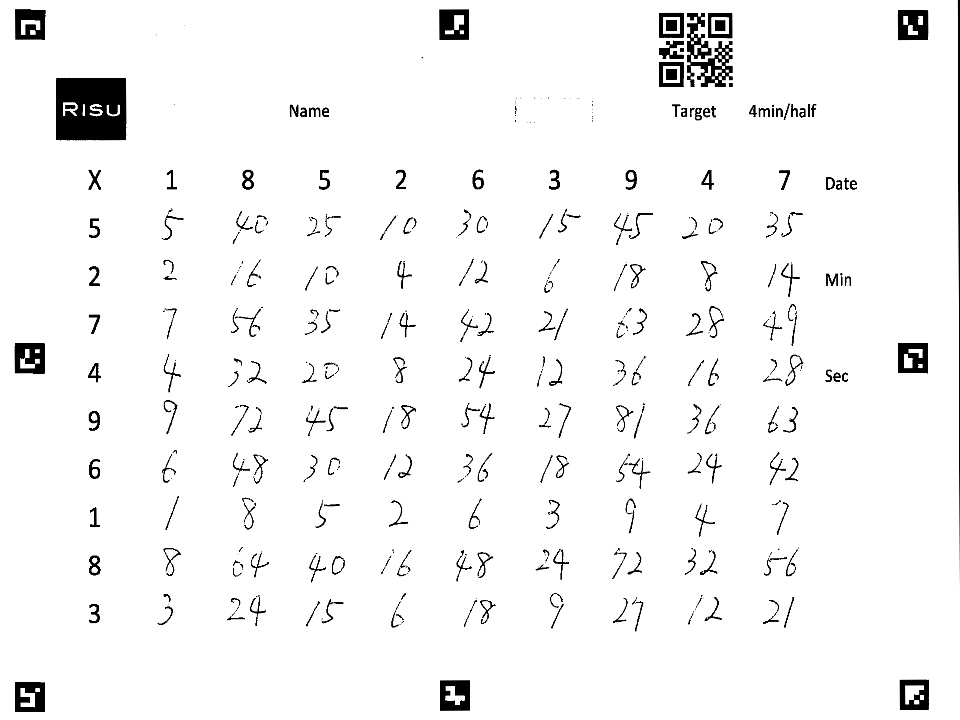 RISU Name Target 4min/half
X 1 8 5 2 6 3 9 4 7 Date
5 5 40 25 10 30 15 45 20 35
2 2 16 10 4 12 6 18 8 14 Min
7 7 56 35 14 42 21 63 28 49
4 4 32 20 8 24 12 36 16 28 Sec
9 9 72 45 18 54 27 81 36 63
6 6 48 30 12 36 18 54 24 42
1 1 8 5 2 6 3 9 4 7
8 8 64 40 16 48 24 72 32 56
3 3 24 15 6 18 9 27 12 21